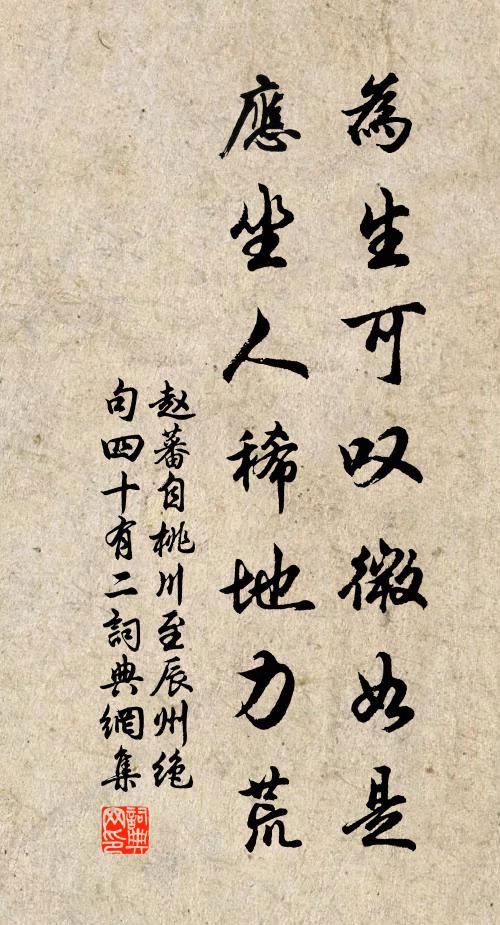 為生可叹微如是
應坐人稀地力荒
赵蕃自桃川至辰州绝
句四十有二詞典網集
詞典
网印